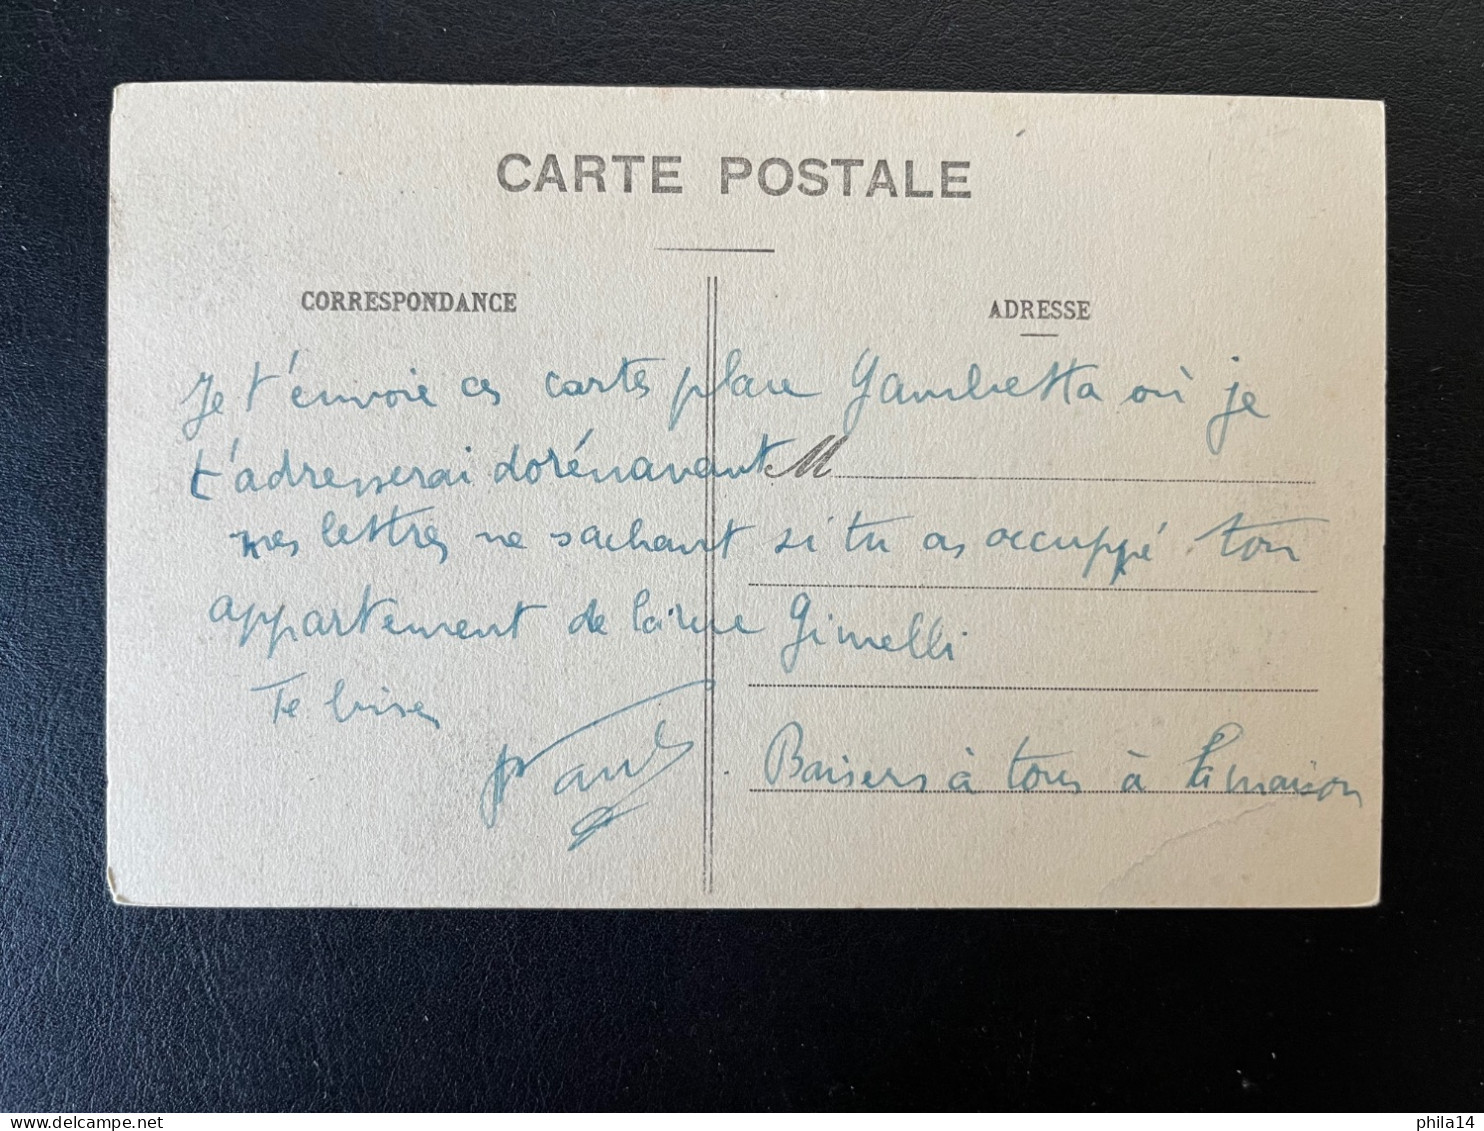 CARTE POSTALE
CORRESPONDANCE
ADRESSE
Je t'envoie ces cartes place Gambetta où je
t'adresserai dorénavant
M
mes lettres ne sachant si tu as occuppé ton
appartement de la rue Gimelli
Te bises
Paul
Baisers à tous à la maison
phila14